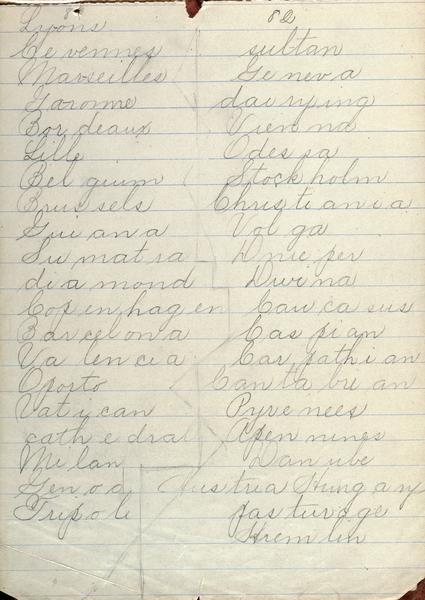 8
Lyons
Cevennes
Marseilles
Garonne
Bordeaux
Lille
Belguim
Brussels
Guiana
Sumatra
diamond
Copenhagen
Barcelona
Valencia
Oporto
Vatican
cathedral
Milan
Genoa
Tripole
82
sultan
Geneva
dairying
Vienna
Odessa
Stockholm
Christiania
Volga
Dnieper
Dwina
Caucasus
Caspian
Carpathian
Cantabrean
Pyrenees
Apennines
Danube
Austria Hungary
pasturage
Kremlin